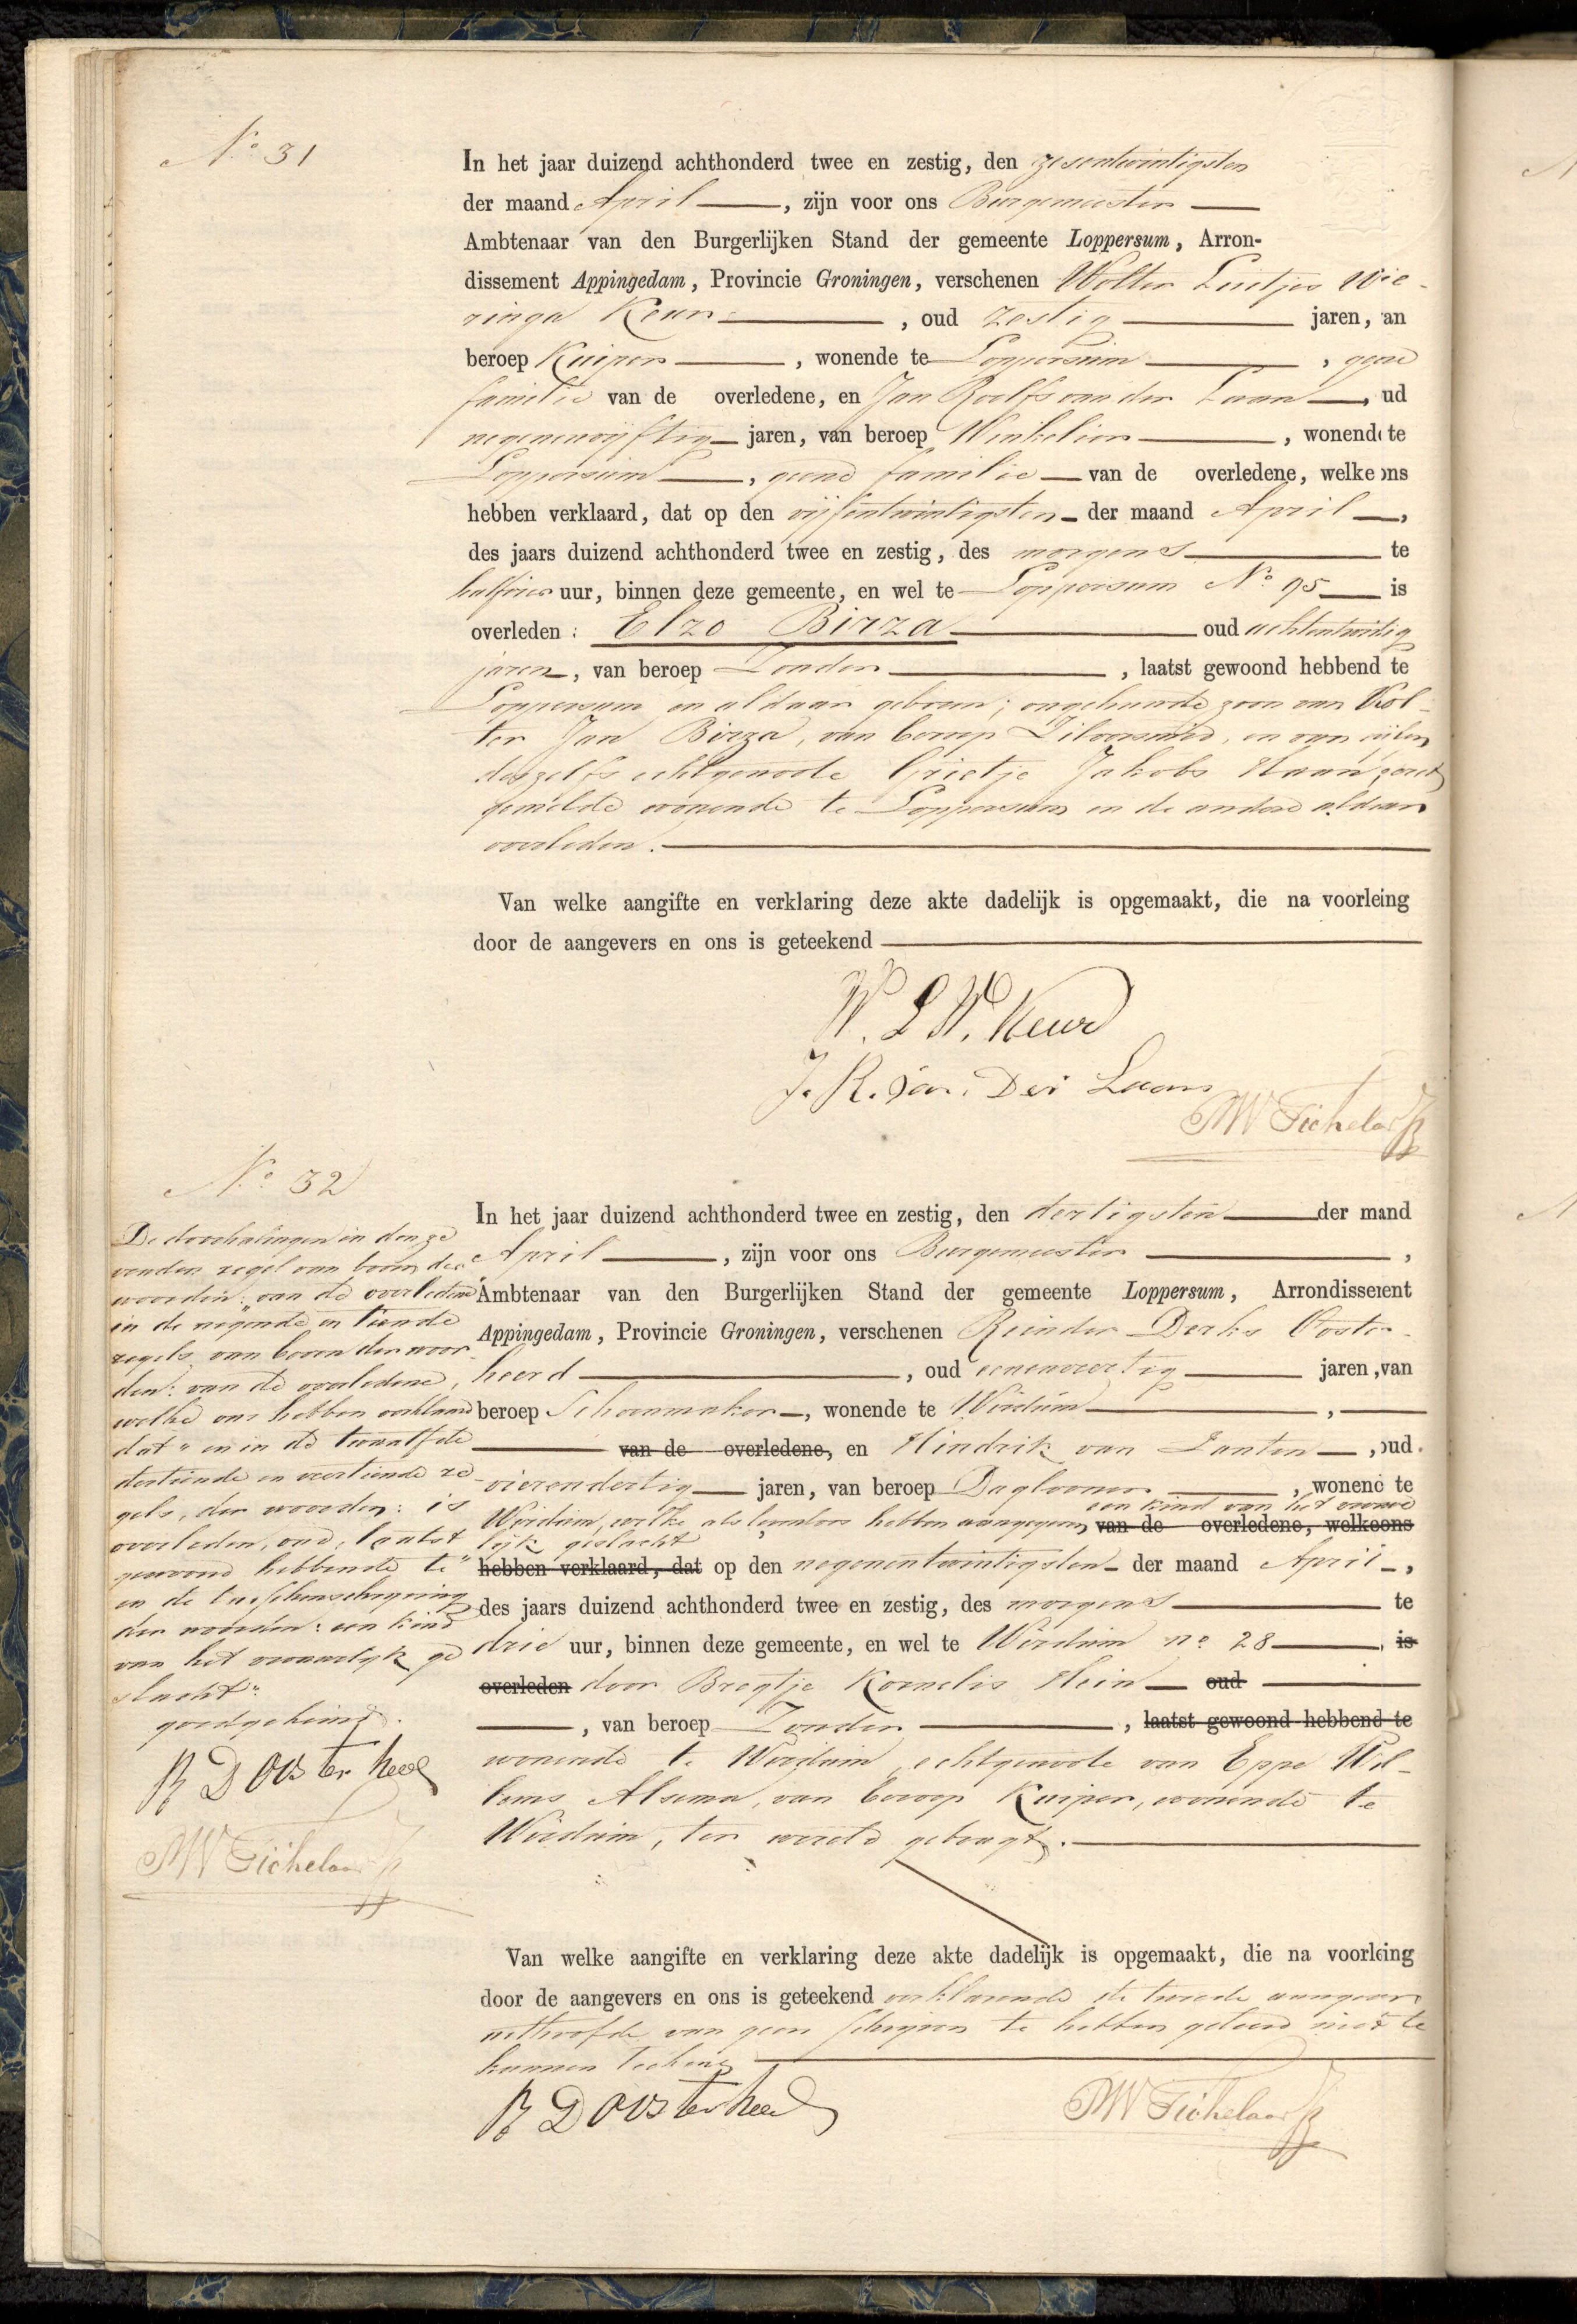 No 31
In het jaar duizend achthonderd twee en zestig, den zesentwintigsten
der maand April, zijn voor ons Burgemeester
Ambtenaar van den Burgerlijken Stand der gemeente Loppersum, Arron-
dissement Appingedam, Provincie Groningen, verschenen Wolter Luitjes Wie-
ringa Keur, oud zestig jaren, van
beroep Kuiper, wonende te Loppersum, geene
familie van de overledene, en Jan Roelfs van der Laan, oud
negenenvijftig jaren, van beroep Winkelier, wonende te
Loppersum, geene familie van de overledene, welke ons
hebben verklaard, dat op den vijfentwintigsten der maand April,
des jaars duizend achthonderd twee en zestig, des morgens te
halfvier uur, binnen deze gemeente, en wel te Loppersum No 95 is
overleden: Elzo Birza oud achtentwintig
jaren, van beroep Zonder, laatst gewoond hebbend te
Loppersum en aldaar geboren; ongehuwde zoon van Wol-
ter Jan Birza, van beroep Zilversmid, en van wijlen
deszelfs echtgenoote Grietje Jakobs Haan, eerst
gemelde wonende te Loppersum en de andere aldaar
overleden.
Van welke aangifte en verklaring deze akte dadelijk is opgemaakt, die na voorlezing
door de aangevers en ons is geteekend
W. L. W. Keur
J. R. Van Der Laan
MW Tichelaar
No 32
De doorhalingen in den ze
venden regel van boven der
woorden: "van de overledene
in de negende en tiende
regels van boven der woor-
den: van de overledene,
welke ons hebben verklaard
dat" en in de twaalfde
dertiende en veertiende re-
gels, der woorden: is
overleden, oud, laatst
gewoond hebbende te"
en de tusschenschrijving
der woorden: een kind
van het vrouwelijk ge
slacht"
goedgekeurd.
R D Oosterheerd
MW Tichelaar
In het jaar duizend achthonderd twee en zestig, den dertigsten der maand
April, zijn voor ons Burgemeester,
Ambtenaar van den Burgerlijken Stand der gemeente Loppersum, Arrondissement
Appingedam, Provincie Groningen, verschenen Reinder Derks Ooster-
heerd, oud eenenveertig jaren, van
beroep Schoenmaker, wonende te Wirdum,
van de overledene, en Hindrik van Zanten, oud
vierendertig jaren, van beroep Daglooner, wonend te
een kind van het vrouwe
Wirdum, welke als levenloos hebben aangegeven van de overledene, welke ons
lijk geslacht
hebben verklaard, dat op den negenentwintigsten der maand April,
des jaars duizend achthonderd twee en zestig, des morgens te
drie uur, binnen deze gemeente, en wel te Wirdum no 28, is
overleden door Bregtje Kornelis Hein oud
, van beroep Zonder, laatst gewoond hebbend te
wonende te Wirdum, echtgenoote van Eppo Wil-
lems Alsema, van beroep Kuiper, wonende te
Wirdum, ter wereld gebragt.
Van welke aangifte en verklaring deze akte dadelijk is opgemaakt, die na voorlezing
door de aangevers en ons is geteekend verklarende de tweede aangever
uit hoofde van geen schrijven te hebben geleerd niet te
kunnen teekenen
R D Oosterheerd
MW Tichelaar